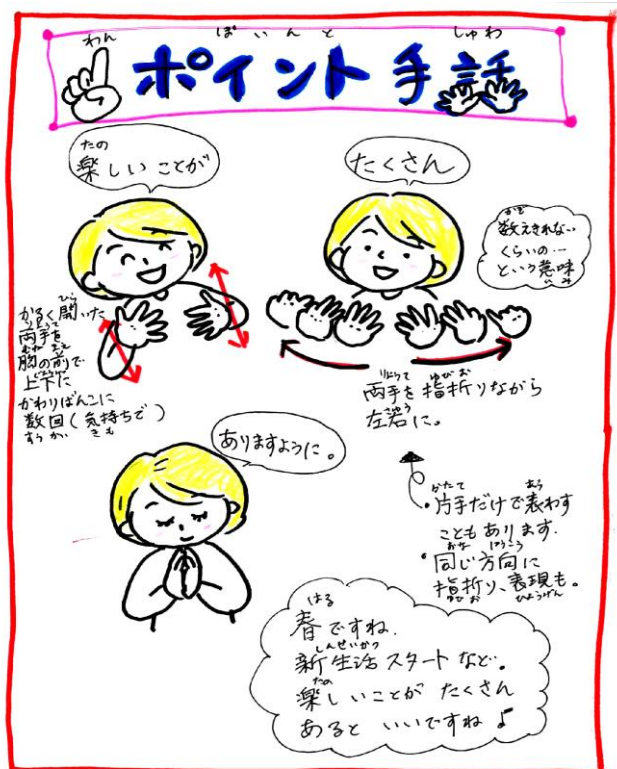 わん ぽいんと しゅわ
ポイント 手話
たの
楽しいことが
たくさん
かぞ
数えきれない
くらいの…
という意味
いみ
ひら
かるく開いた
りょうて
両手を
むね まえ
胸の前で
じょうげ
上下に
かわりばんこに
数回(気持ちで)
すうかい きも
りょうて ゆびお
両手を指折りながら
さゆう
左右に。
ありますように。
かたて あら
・片手だけで表わす
こともあります.
おな ほうこう
・同じ方向に
指折り、表現も。
ゆび お ひょうげん
はる
春ですね.
しんせいかつ
新生活スタートなど。
たの
楽しいことが たくさん
あると いいですね♪